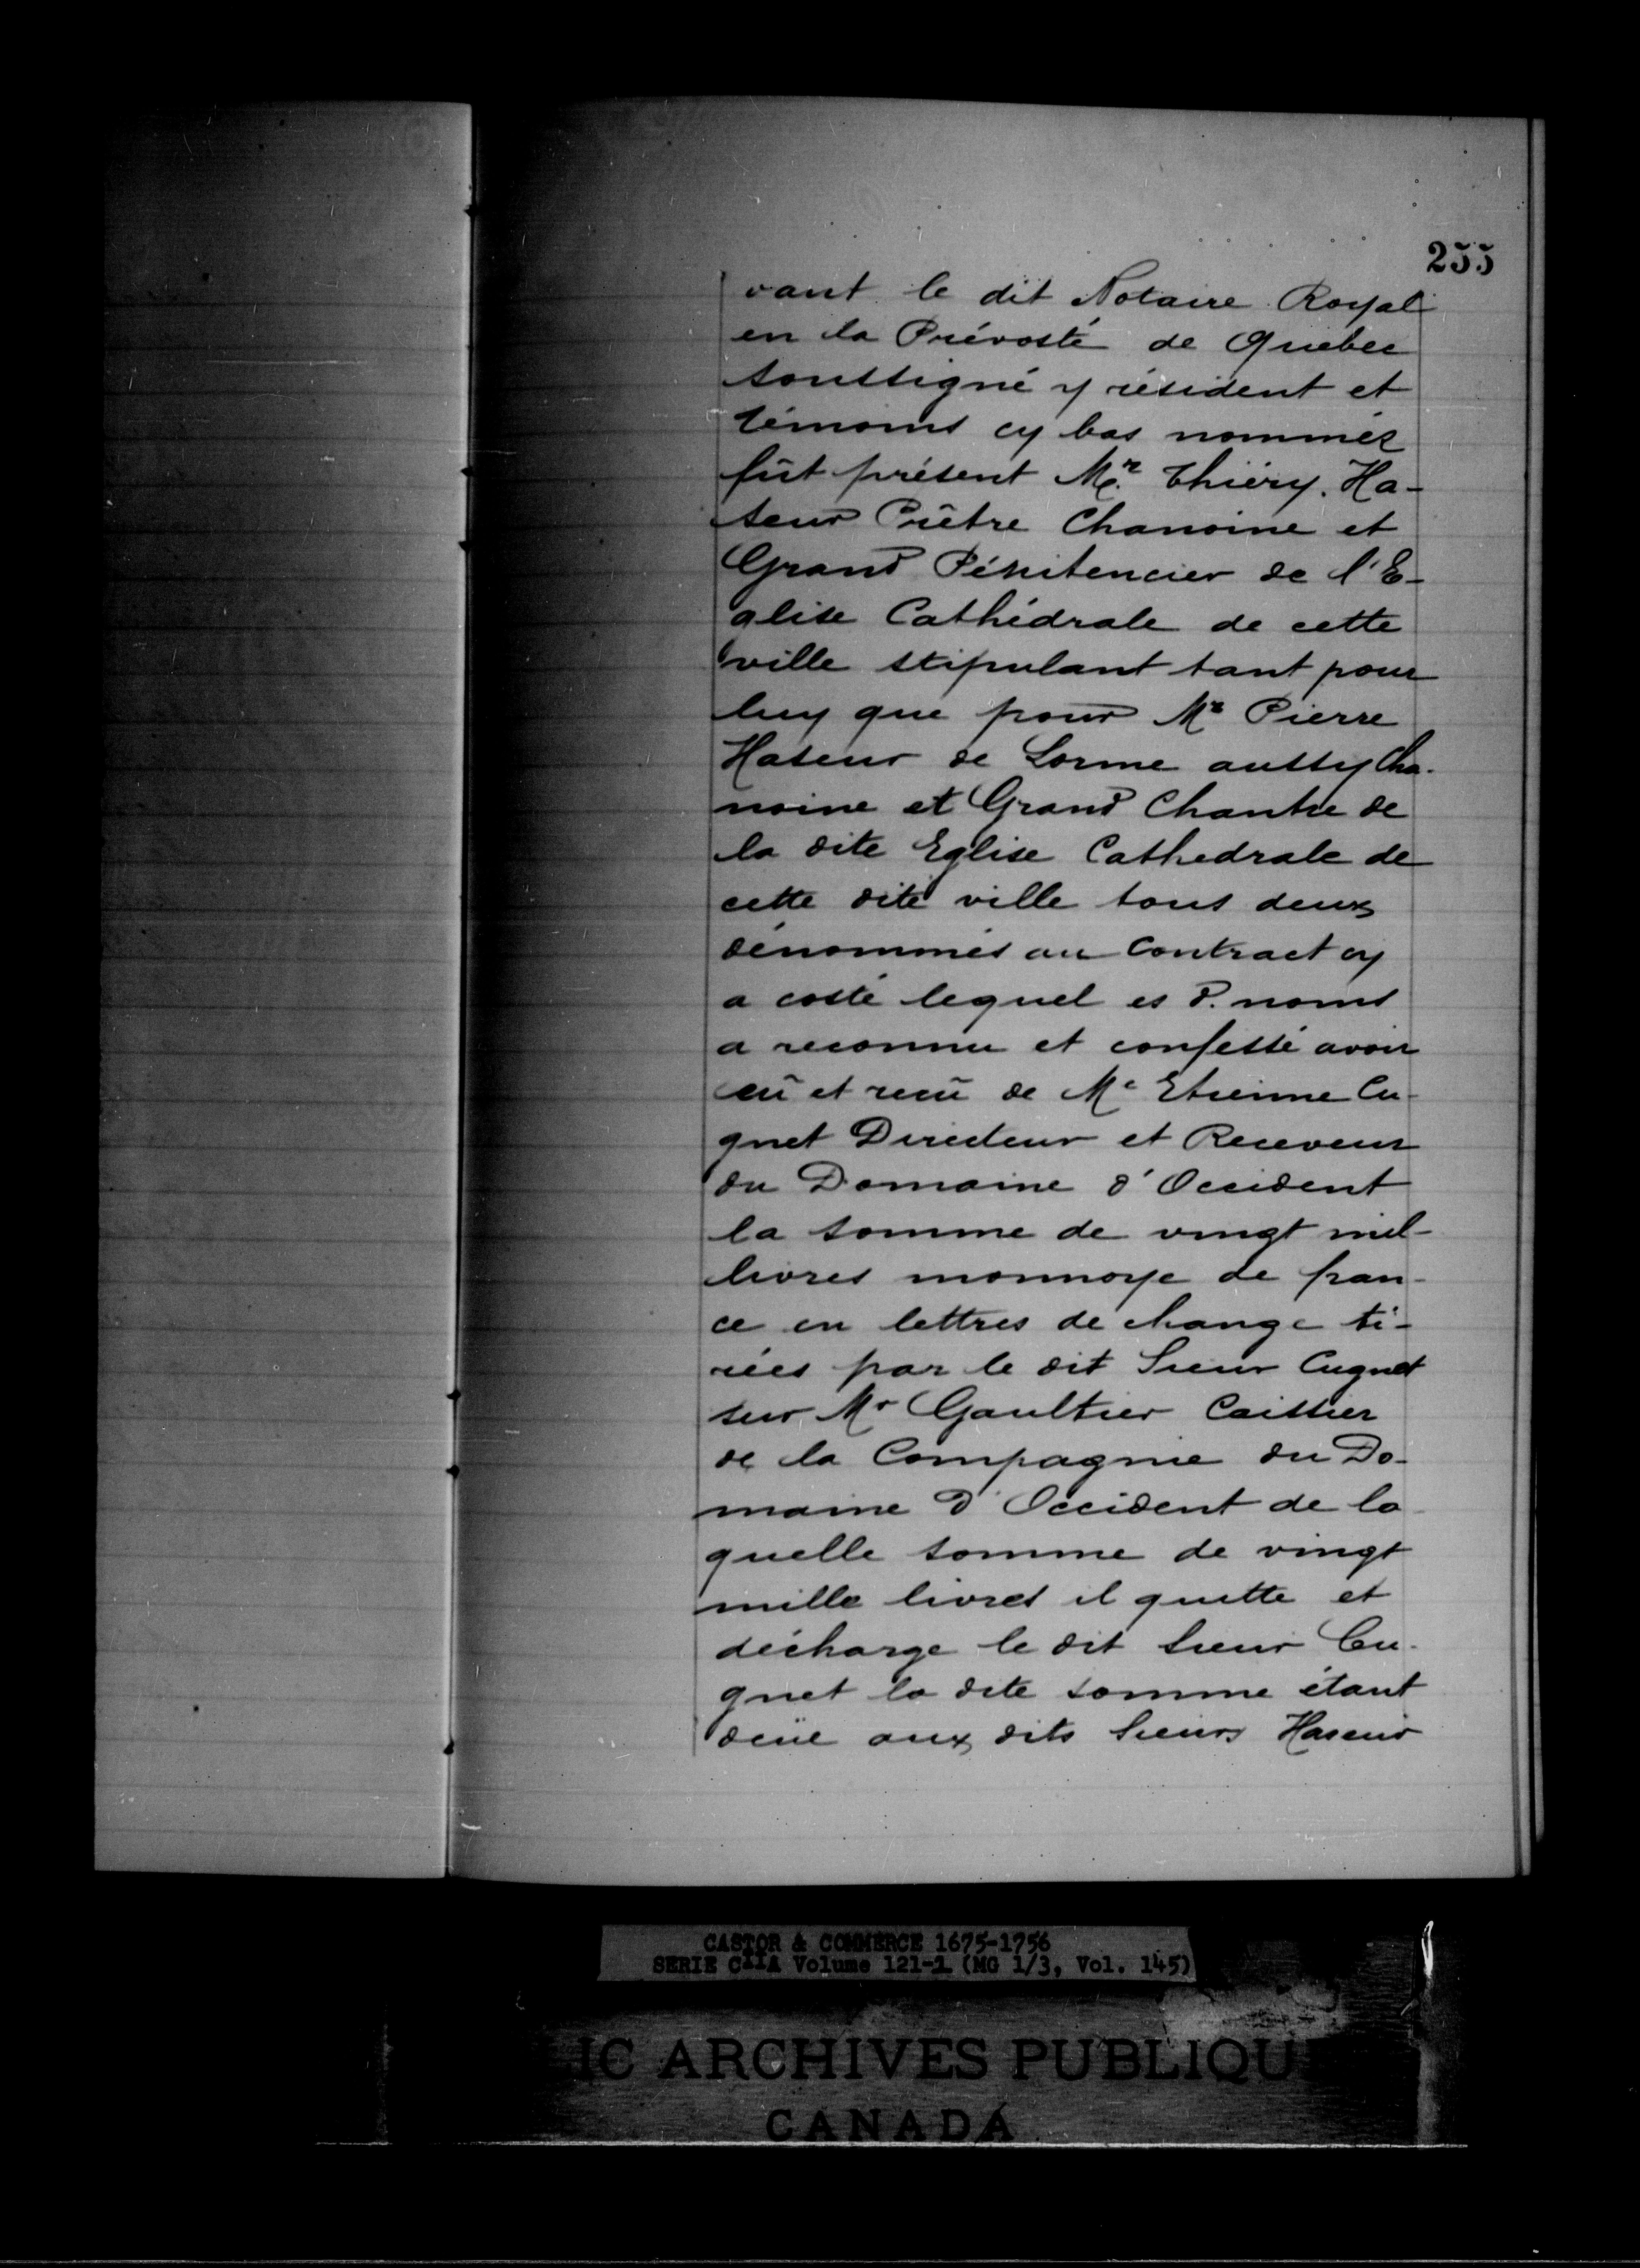 255
vant le dit Notaire Royal
en la Prévosté de Quebec
soussigné y résident et
témoins cy bas nommés
fût présent Mr. Thiéry. Ha-
seur Prêtre Chanoine et
Grand Pénitencier de l'E-
glise Cathédrale de cette
ville stipulant tant pour
luy que pour Mr Pierre
Haseur de Lorme aussy Cha-
noine et Grand Chantre de
la dite Eglise Cathedrale de
cette dite ville tous deux
dénommés au Contract cy
a costé lequel es d. noms
a reconnu et confessé avoir
eû et reçu de Me Etienne Cu-
gnet Directeur et Receveur
du Domaine d'Occident
la somme de vingt mil-
livres monnoye de fran-
ce en lettres de change ti-
rées par le dit Sieur Cugnet
sur Mr Gaultier Caissier
de la Compagnie du Do-
maine d'Occident de la
quelle somme de vingt
mille livres il quitte et
décharge le dit Sieur Cu-
gnet la dite somme étant
deüe aux dits Sieurs Haseur
CASTOR & COMMERCE 1675-1756
SERIE CIIA Volume 121-1 (MG 1/3, Vol. 145)
IC ARCHIVES PUBLIQU
CANADA